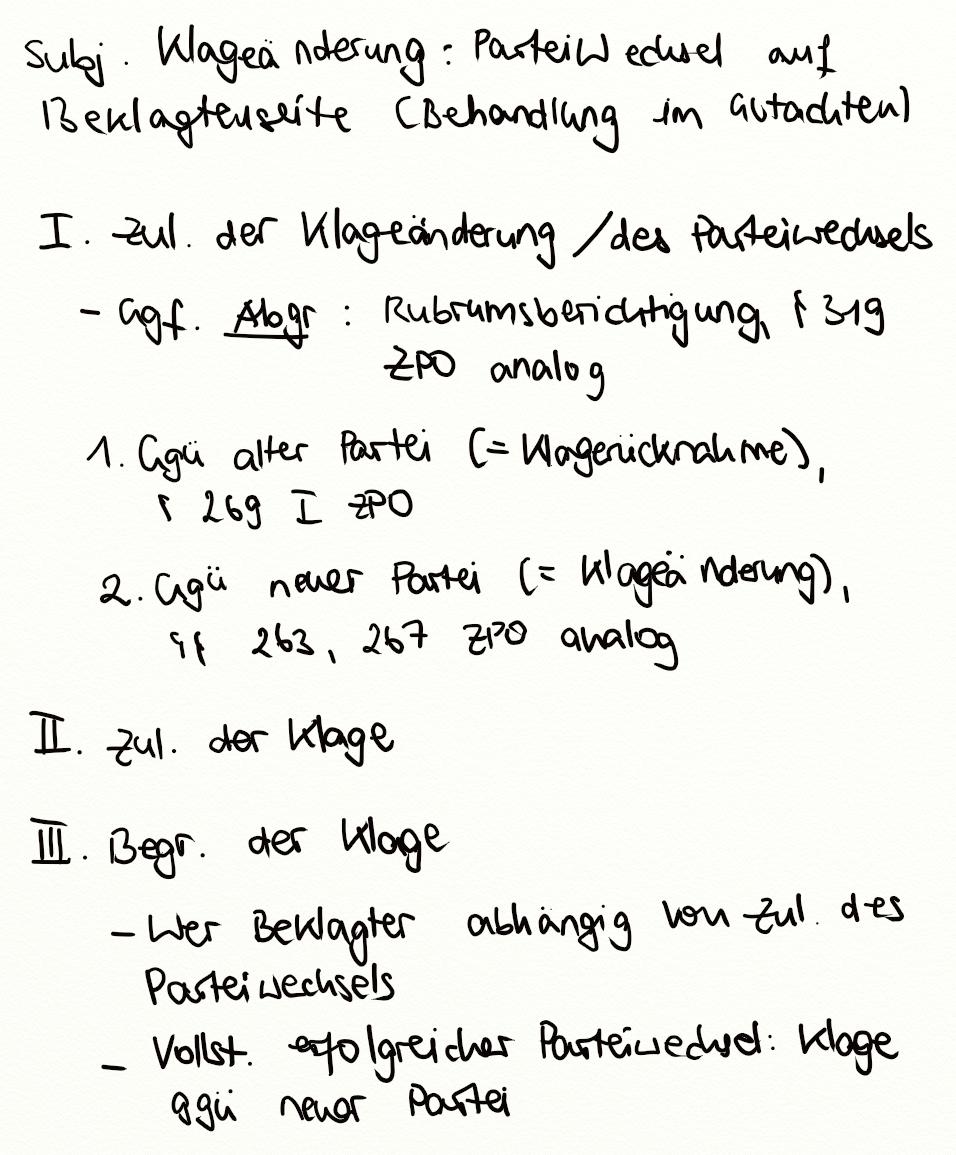 Subj. Klageänderung: Parteiwechsel auf
Beklagtenseite (Behandlung im Gutachten)
I. Zul. der Klageänderung / des Parteiwechsels
- Ggf. Abgr: Rubrumsberichtigung, § 319
ZPO analog
1. Ggü alter Partei (= Klagerücknahme),
§ 269 I ZPO
2. Ggü neuer Partei (= Klageänderung),
§§ 263, 267 ZPO analog
II. Zul. der Klage
III. Begr. der Klage
- Wer Beklagter abhängig von Zul. des
Parteiwechsels
- Vollst. erfolgreicher Parteiwechsel: Klage
ggü neuer Partei